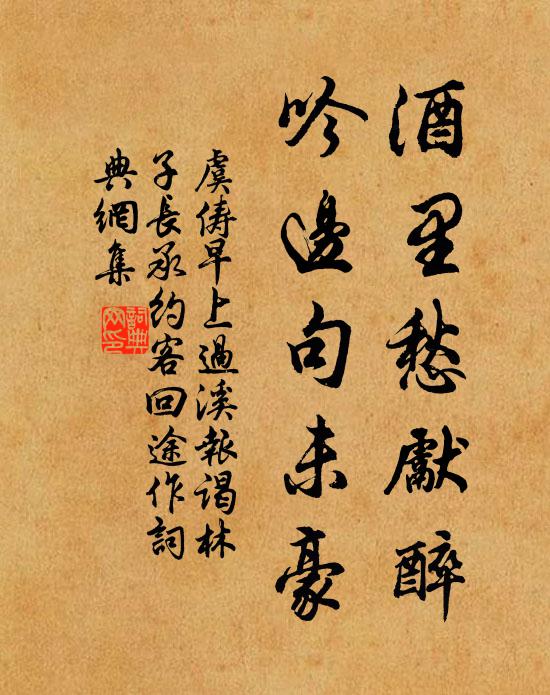 酒里愁獻醉
吟邊句未豪
虞儔早上過溪報谒林
子長承約客回途作詞
典網集
詞典
网印